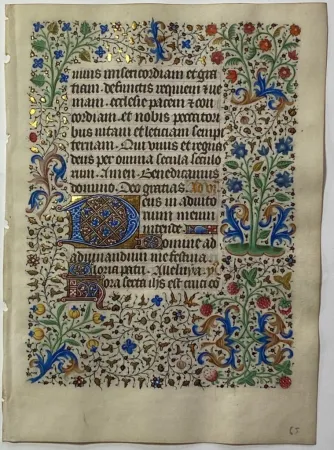 mimis misericordiam et gra
tiam. defunctis requiem & ue
niam. ecclesie pacem & con
cordiam. et nobis peccatori
bus uitam et leticiam sempi
ternam. Qui uiuis et regnas
deus per omnia secula seculo
rum. Amen. Benedicamus
domino. Deo gratias. Ad vi
Deus in adiuto
rium meum
intende.
Domine ad
adiuuandum me festina.
Gloria patri. Alleluya. ps
Hora sexta ihs est cruci co
67